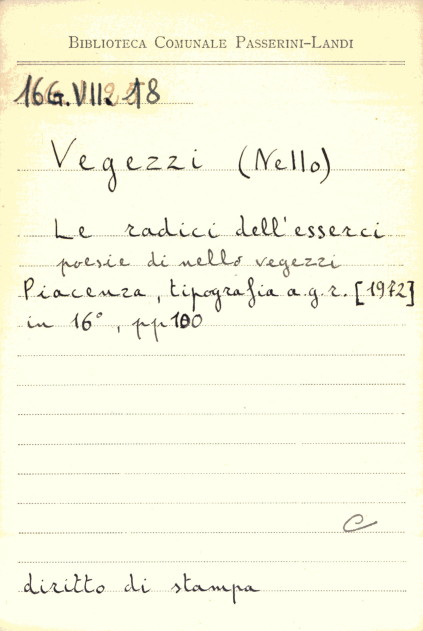 BIBLIOTECA COMUNALE PASSERINI-LANDI
16G.VII. 18
Vegezzi (Nello)
Le radici dell'esserci
poesie di nello vegezzi
Piacenza, tipografia a.g.r. [1972]
in 16°, pp 100
C
diritto di stampa